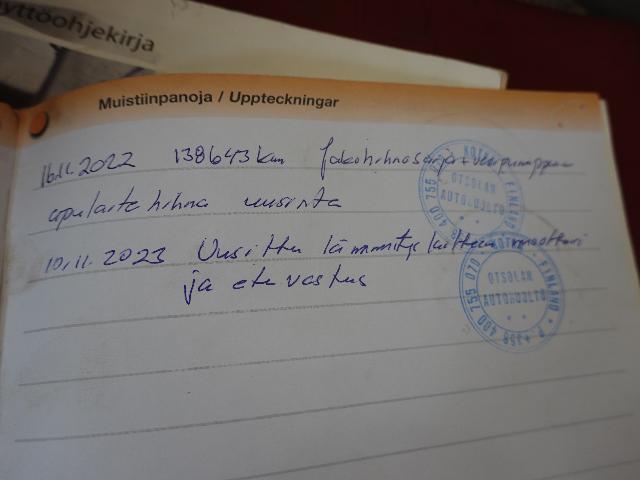 yttöohjekirja
Muistiinpanoja / Uppteckningar
16.11.2022 138643km Jakohihnasarja + vesipumppu
apulaite hihna uusinta
10.11.2023 Uusittu lämmityslaitteen moottori
ja etuvastus
KOTKA FINLAND
OTSOLAN
AUTOHUOLTO
400 755 070
KOTKA • FINLAND • P +358 400 755 070
OTSOLAN
AUTOHUOLTO